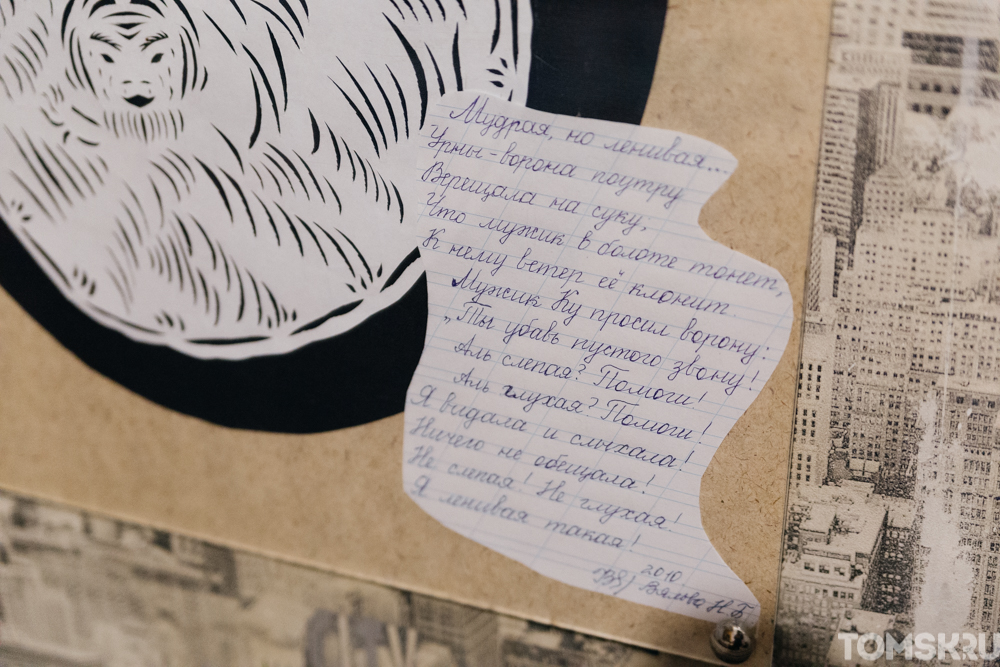 Мудрая, но ленивая...
Урны-ворона поутру
Верещала на суку,
Что мужик в болоте тонет,
К нему ветер её клонит.
Мужик Ку просил ворону:
„Ты убавь пустого звону!
Аль слепая? Помоги!
Аль глухая? Помоги!
Я видала и слыхала!
Ничего не обещала!
Не слепая! Не глухая!
Я ленивая такая!
2010
Вялова Н.Б
TOMSK.RU